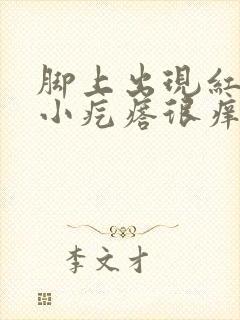 脚上出現紅
小疙瘩很痒
李文才